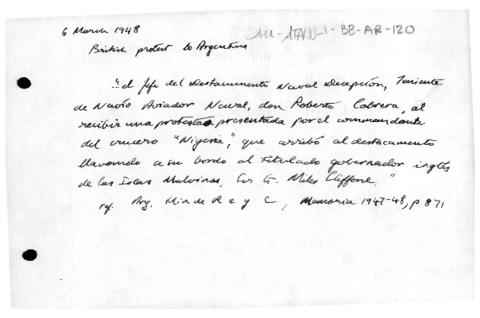 6 March 1948
British protest to Argentina
"el Jefe del Destacamento Naval Decepción, Teniente
de Navío Aviador Naval, don Roberto Cabrera, al
recibir una protesta presentada por el commandante
del crucero "Nigeria", que arribó al destacamento
llevando a su bordo al titulado gobernador inglés
de las Islas Malvinas, Sir G. Miles Clifford."
ref. Arg. Min de R e y C, Memoria 1947-48, p 871